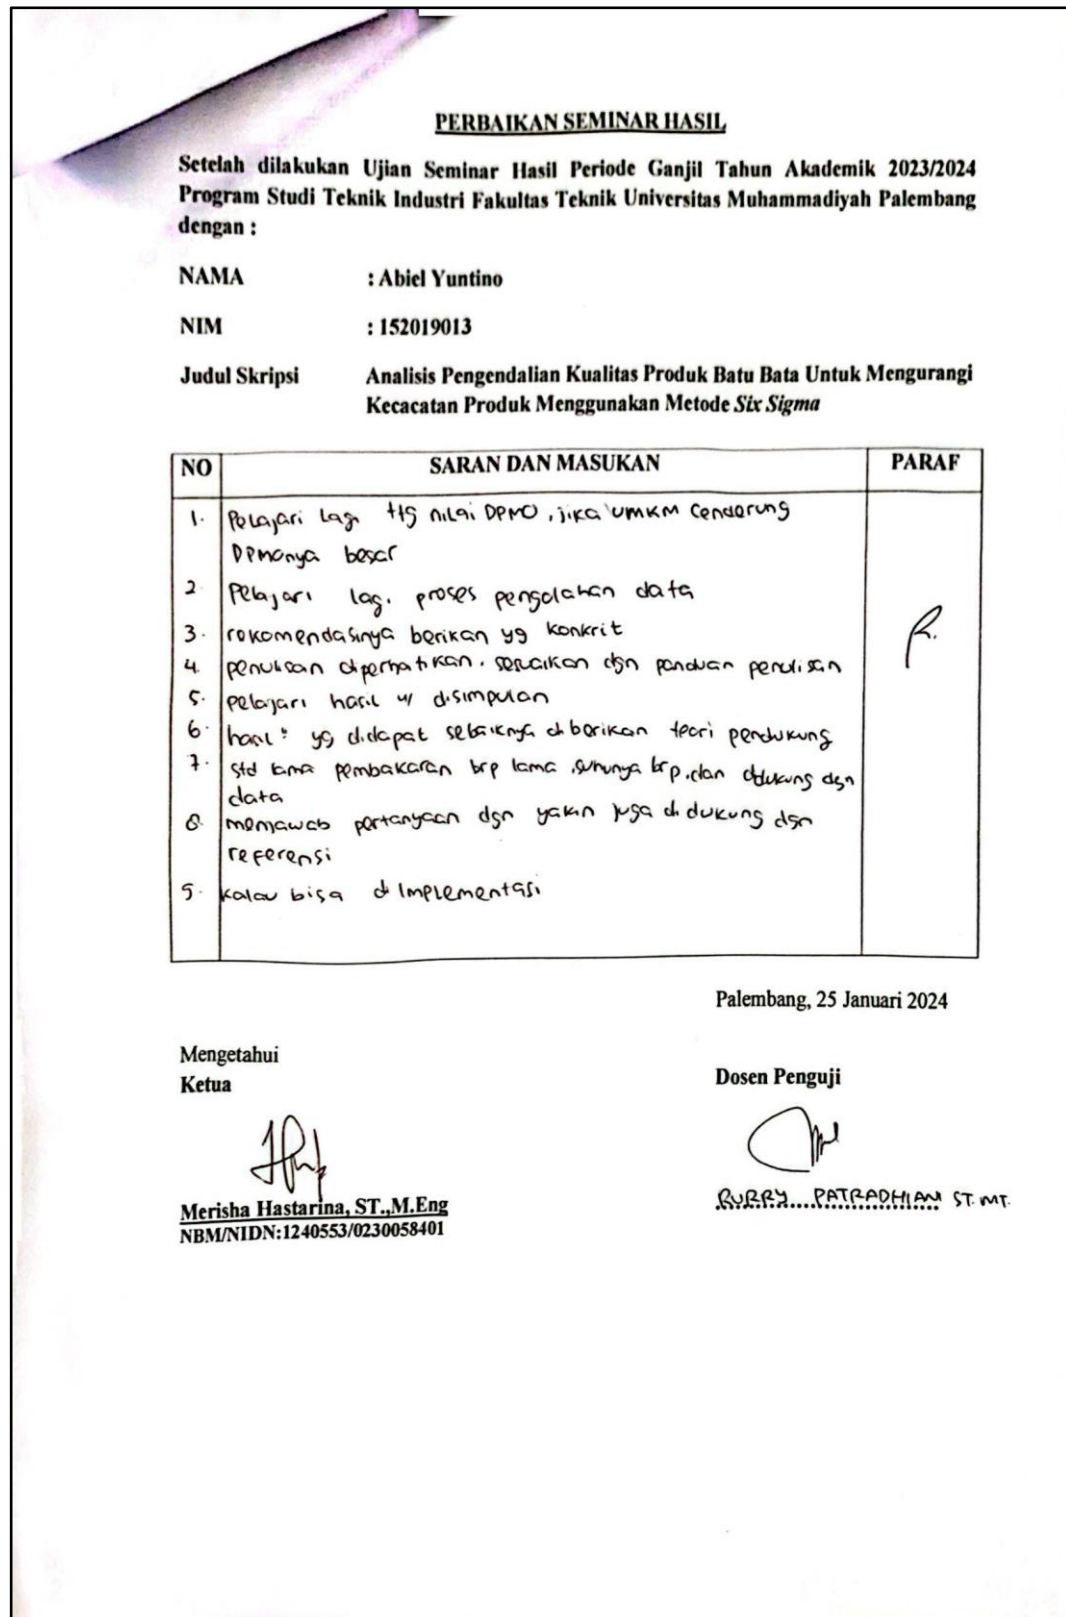 PERBAIKAN SEMINAR HASIL
Setelah dilakukan Ujian Seminar Hasil Periode Ganjil Tahun Akademik 2023/2024
Program Studi Teknik Industri Fakultas Teknik Universitas Muhammadiyah Palembang
dengan :
NAMA : Abiel Yuntino
NIM : 152019013
Judul Skripsi Analisis Pengendalian Kualitas Produk Batu Bata Untuk Mengurangi
Kecacatan Produk Menggunakan Metode Six Sigma
NO SARAN DAN MASUKAN PARAF
1. Pelajari lagi ttg nilai DPMO, jika UMKM cenderung
DPMOnya besar
2. Pelajari lagi proses pengolahan data
3. rekomendasinya berikan yg konkrit
4. penulisan diperhatikan. sesuaikan dgn panduan penulisan
5. pelajari hasil u/ disimpulan
6. hasil" yg didapat sebaiknya diberikan teori pendukung
7. std lama pembakaran brp lama, suhunya brp. dan didukung dgn
data
8. menjawab pertanyaan dgn yakin juga di dukung dgn
referensi
9. kalau bisa di implementasi
Palembang, 25 Januari 2024
Mengetahui
Ketua
Dosen Penguji
Merisha Hastarina, ST.,M.Eng
NBM/NIDN:1240553/0230058401
RURRY PATRADHIANI ST. MT.